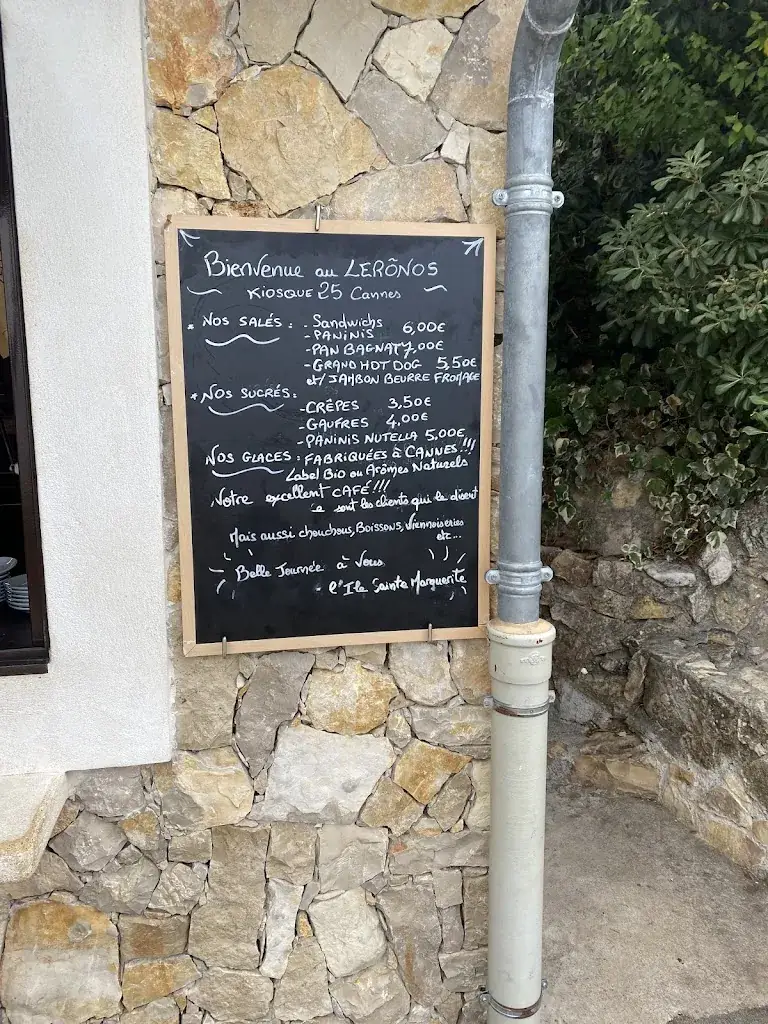 Bienvenue au LERÔNOS
KIOSQUE 25 Cannes
* NOS SALÉS : - Sandwichs
- PANINIS 6,00€
- PAN BAGNAT 7,00€
- GRAND HOT DOG 5,50€
et/ JAMBON BEURRE FROMAGE
* NOS SUCRÉS :
- CRÊPES 3,50€
- GAUFRES 4,00€
- PANINIS NUTELLA 5,00€
NOS GLACES : FABRIQUÉES À CANNES !!!
Label Bio ou Arômes Naturels
Notre excellent CAFÉ !!!
ce sont les clients qui le disent
Mais aussi chouchous, BOISSONS, Viennoiseries
etc...
Belle Journée à Vous
- l'Ile Sainte Marguerite